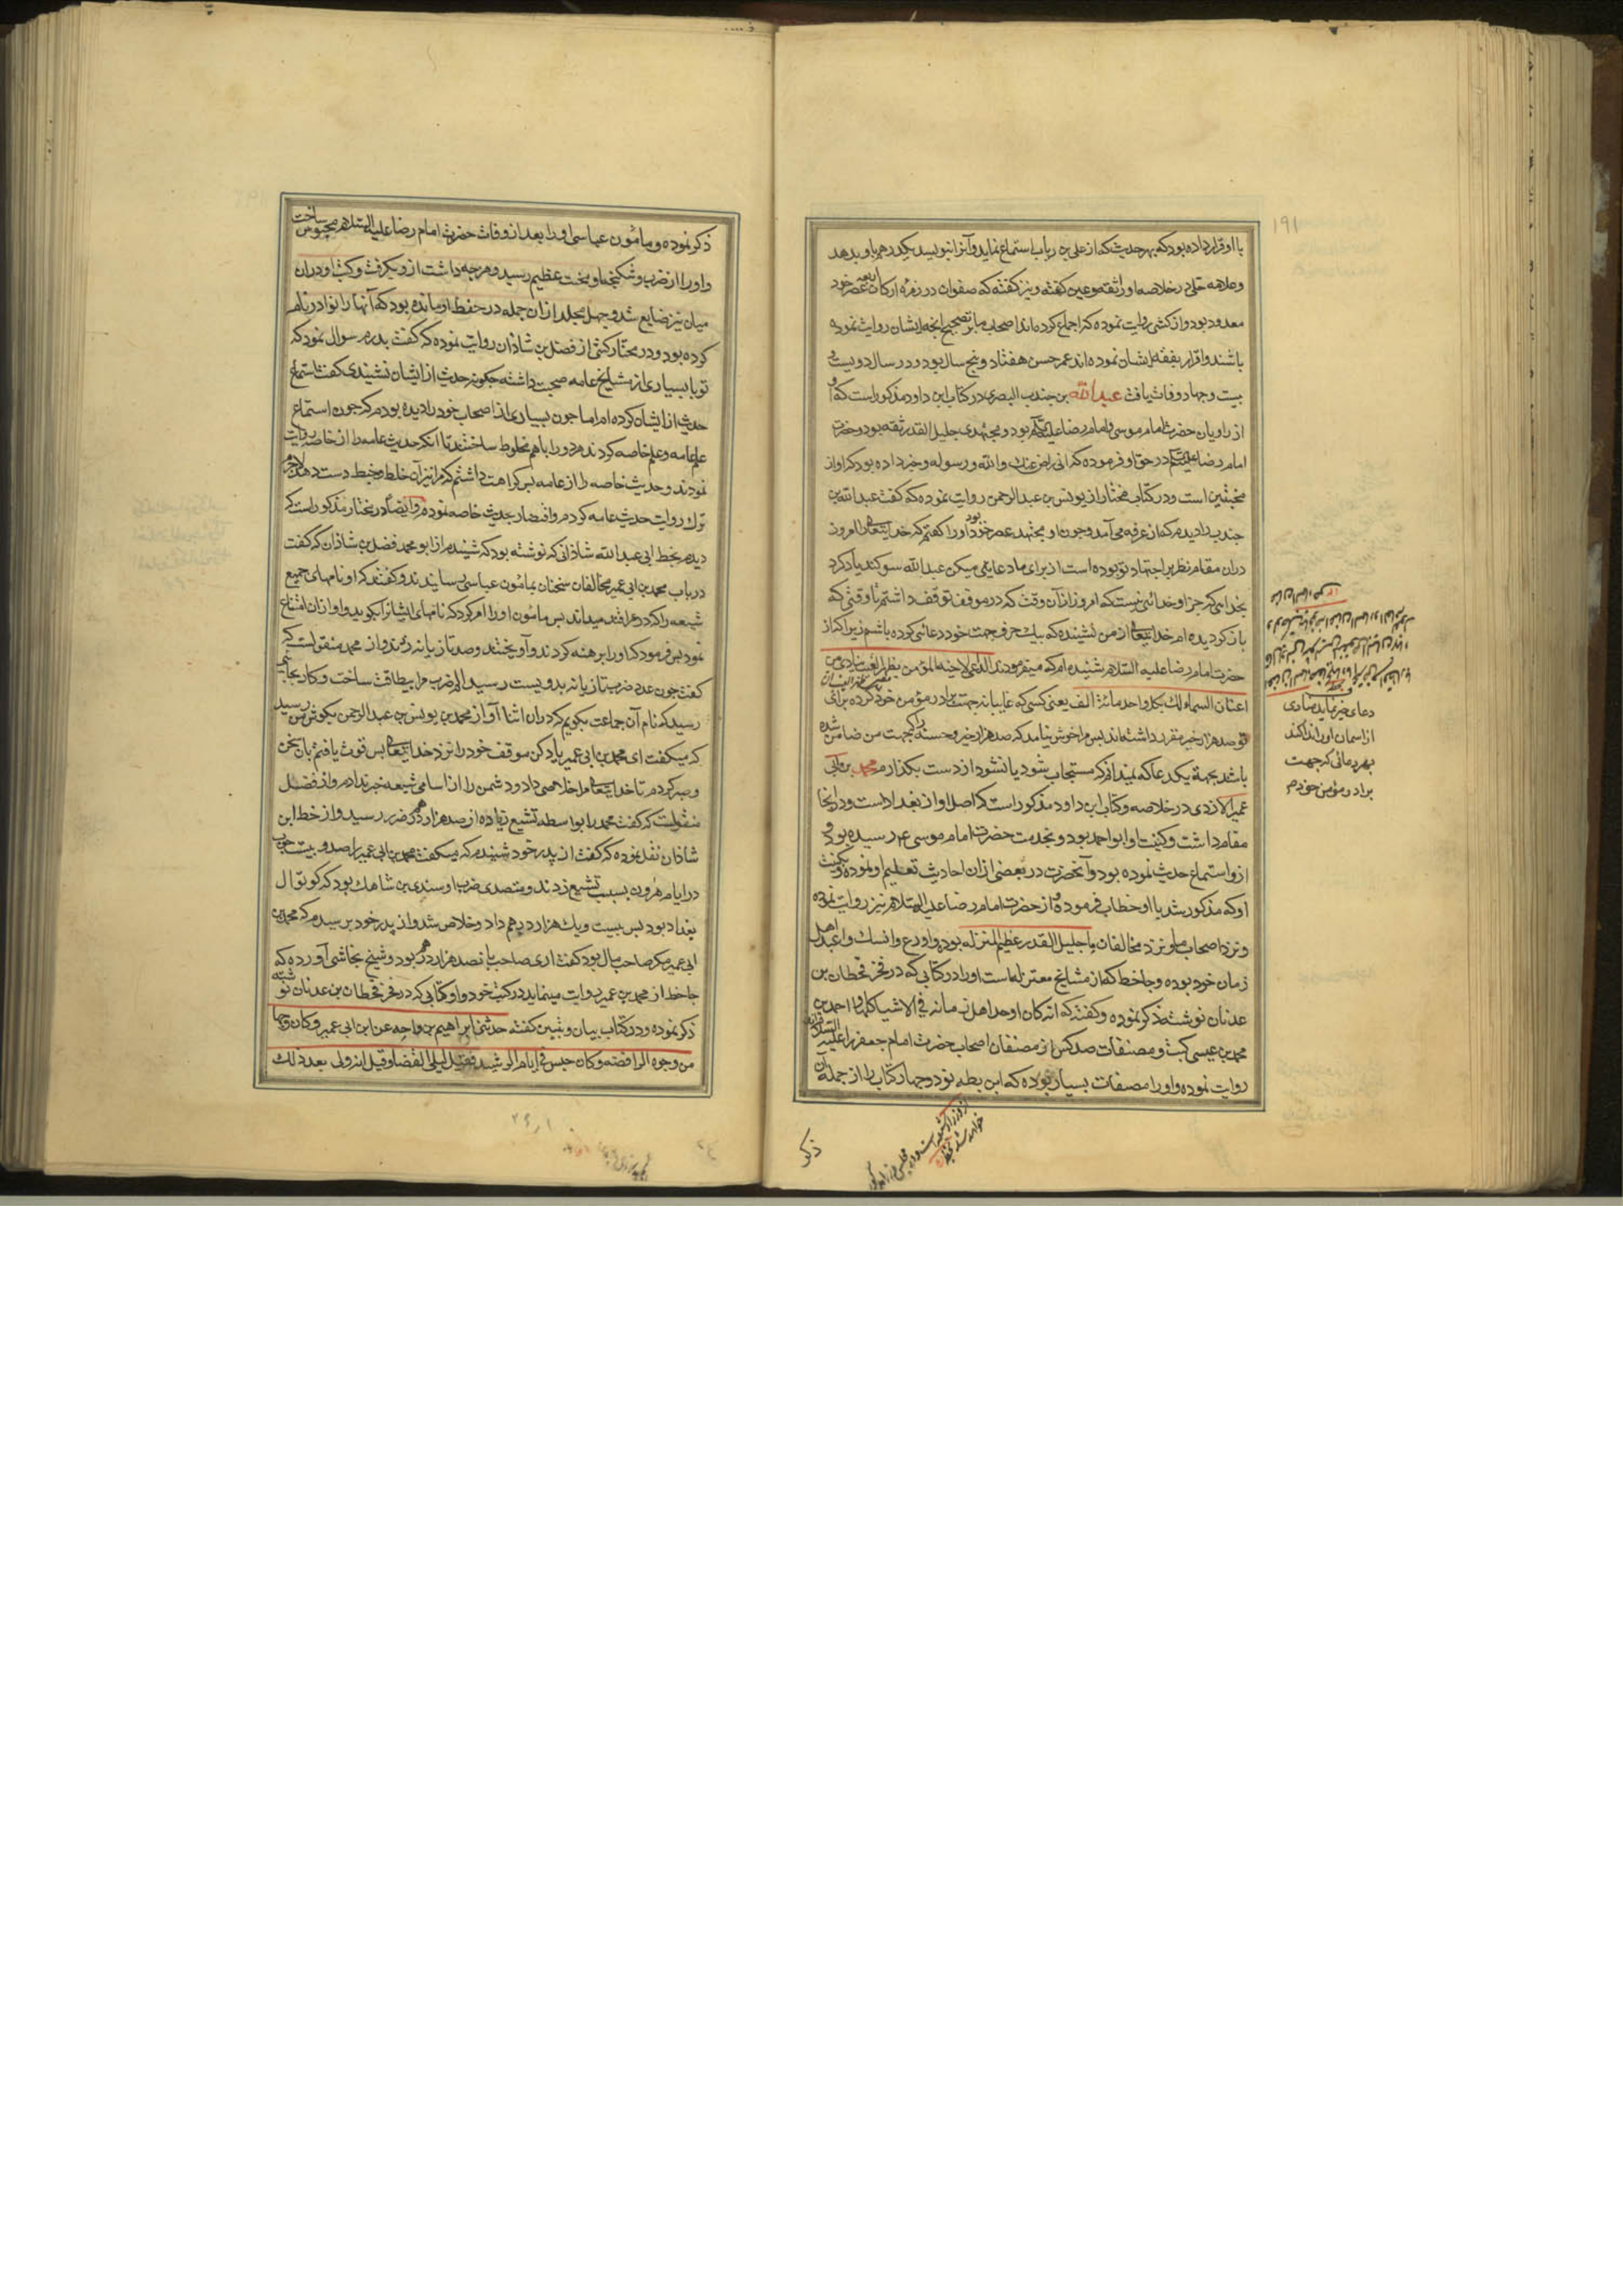 ١٩١
با او قرار داده بود که بهر حدیث که از علی بن رباب استماع نماید و آنرا بنویسد یکدرهم باو بدهد
وعلامه حلی در خلاصه او را ثقه وعین گفته ونیز گفته که صفوان در زمره ارکان اربعه عصر خود
معدود بود و از کشی روایت نموده که اجماع کرده اند اصحاب ما بر تصحیح انچه ایشان روایت نموده
باشند واقرار بفقه ایشان نموده اند عمر حسن هفتاد و پنج سال بود و در سال دویست و
بیست و چهار وفات یافت عبدالله بن جندب البصری در کتاب ابن داود مذکور است که او
از راویان حضرت امام موسی وامام رضا علیهما السلم بود و مجتهدی جلیل القدر ثقه بود وحضرت
امام رضا علیه السلم در حق او فرموده که انی راض عنک والله ورسوله وخبر داده بود که او از
مخبتین است ودر کتاب مختار از یونس بن عبدالرحمن روایت نموده که گفت عبدالله بن
جندب را دیدم که از عرفه می آمد وچون او مجتهد عصر خود بود او را گفتم که خدایتعالی امروز
دران مقام نظر بر اجتهاد تو بوده است از برای ما دعایی میکن عبدالله سوکند یاد کرد
بخدایی که جز او خدائی نیست که امروز از آن وقت که در موقف توقف داشتم تا وقتی که
باز کردیده ام خدایتعالی از من نشنیده که بیک حرف جهت خود دعائی کرده باشم زیرا که از
حضرت امام رضا علیه السلام شنیده ام که میفرمودند الداعی لاخیه المؤمن بظهر الغیب ینادی من
اعنان السماء لک بکل واحد مائة الف یعنی کسی که غایبانه جهت برادر مؤمن خود کرده برای
تو صد هزار خیر مقرر داشته اند پس مرا خوش نیامد که صد هزار خیر وحسنه را که جهت من ضامن شده
باشد بجهة یک دعا که نمیدانم که مستجاب شود یا نشود از دست بکذارم محمد بن ابی
عمیر الازدی در خلاصه وکتاب ابن داود مذکور است که اصل او از بغداد است ودر انجا
مقام داشت وکنیت او ابو احمد بود وبخدمت حضرت امام موسی ع رسیده بود و
ازو استماع حدیث نموده بود و آنحضرت در بعضی ازان احادیث تعظیم او نموده وبکنیت
او که مذکور شد با او خطاب فرموده واز حضرت امام رضا علیه السلام نیز روایت نموده
ونزد اصحاب ما ونزد مخالفان ما جلیل القدر عظیم المنزله بوده واورع وانسک واعبد اهل
زمان خود بوده وجاحظ که از مشایخ معتزله است او را در کتابی که در فخر قحطان بن
عدنان نوشته ذکر نموده وکفته که انه کان اوحد اهل زمانه فی الاشیاء کلها واحمد بن
محمد بن عیسی کتب ومصنفات صد کس از مصنفان اصحاب حضرت امام جعفر را علیه السلام ازو
روایت نموده واو را مصنفات بسیار بوده که ابن بطه نود وچهار کتاب را از جمله آن
ذکر
دعای خیر نماید منادی
از آسمان او را ندا کند
بهر دعائی که جهت
برادر مؤمن خود م
ذکر نموده ومامون عباسی او را بعد از وفات حضرت امام رضا علیه السلام محبوس ساخت
واو را از ضرب وشکنجه او محنت عظیم رسید وهر چه داشت ازو بکرفت وکتب او دران
میان نیز ضایع شد وچهل مجلد ازان جمله در حفظ او مانده بود که آنها را نوادر نام
کرده بود ودر مختار کشی از فضل بن شاذان روایت نموده که گفت پدرم سوال نمود که
تو با بسیاری از مشایخ عامه صحبت داشته چکونه حدیث از ایشان نشنیدی گفت استماع
حدیث از ایشان کرده ام اما چون بسیاری از اصحاب خود را دیده بودم که چون استماع
علم عامه وعلم خاصه کردند هر دو را با هم مخلوط ساختند تا آنکه حدیث عامه را از خاصه روایت
نمودند وحدیث خاصه را از عامه پس کراهت داشتم که مرا نیز آن خلط وخبط دست دهد لاجرم
ترک روایت حدیث عامه کردم واقتصار بحدیث خاصه نمودم وایضا در مختار مذکور است که
دیدم بخط ابی عبدالله شاذانی که نوشته بود که شنیدم از ابو محمد فضل بن شاذان که گفت
در باب محمد بن ابی عمیر مخالفان سخنان بمامون عباسی رسانیدند وگفتند که او نامهای جمیع
شیعه را که در عراقند میداند پس مامون او را امر کرد که نامهای ایشانرا بکوید واو ازان امتناع
نمود پس فرمود که او را برهنه کردند وآویختند وصد تازیانه زدند واز محمد منقولست که
گفت چون عدد ضرب تازیانه بدویست رسید الم ضرب مرا بیطاقت ساخت وکار بجایی
رسید که نام آن جماعت بگویم که دران اثنا آواز محمد بن یونس بن عبدالرحمن بگوش من رسید
که میگفت ای محمد بن ابی عمیر یاد کن موقف خود را نزد خدایتعالی پس قوت یافتم بان سخن
وصبر کردم تا خدایتعالی مرا خلاصی داد ودشمن را از اسامی شیعه خبر ندادم واز فضل
منقولست که گفت محمد را بواسطه تشیع زیاده از صد هزار درهم ضرر رسید واز خط ابن
شاذان نقل نموده که گفت از پدر خود شنیدم که میگفت محمد بن ابی عمیر را صد وبیست چوب
در ایام هرون بسبب تشیع زدند ومتصدی ضرب او سندی بن شاهک بود که کوتوال
بغداد بود پس بیست ویک هزار درهم داد وخلاص شد واز پدر خود پرسیدم که محمد بن
ابی عمیر مکر صاحب مال بود گفت اری صاحب پانصد هزار درهم بود وشیخ نجاشی آورده که
جاحظ از محمد بن عمیر روایت مینماید در کتب خود واو کتابی که در فخر قحطان بن عدنان نوشته
ذکر نموده ودر کتاب بیان وتبیین گفته حدثنی ابراهیم بن داحه عن ابن ابی عمیر وکان وجها
من وجوه الرافضه وکان حبس فی ایام الرشید فقیل لیلی القضا وقیل انه ولی بعد ذلک